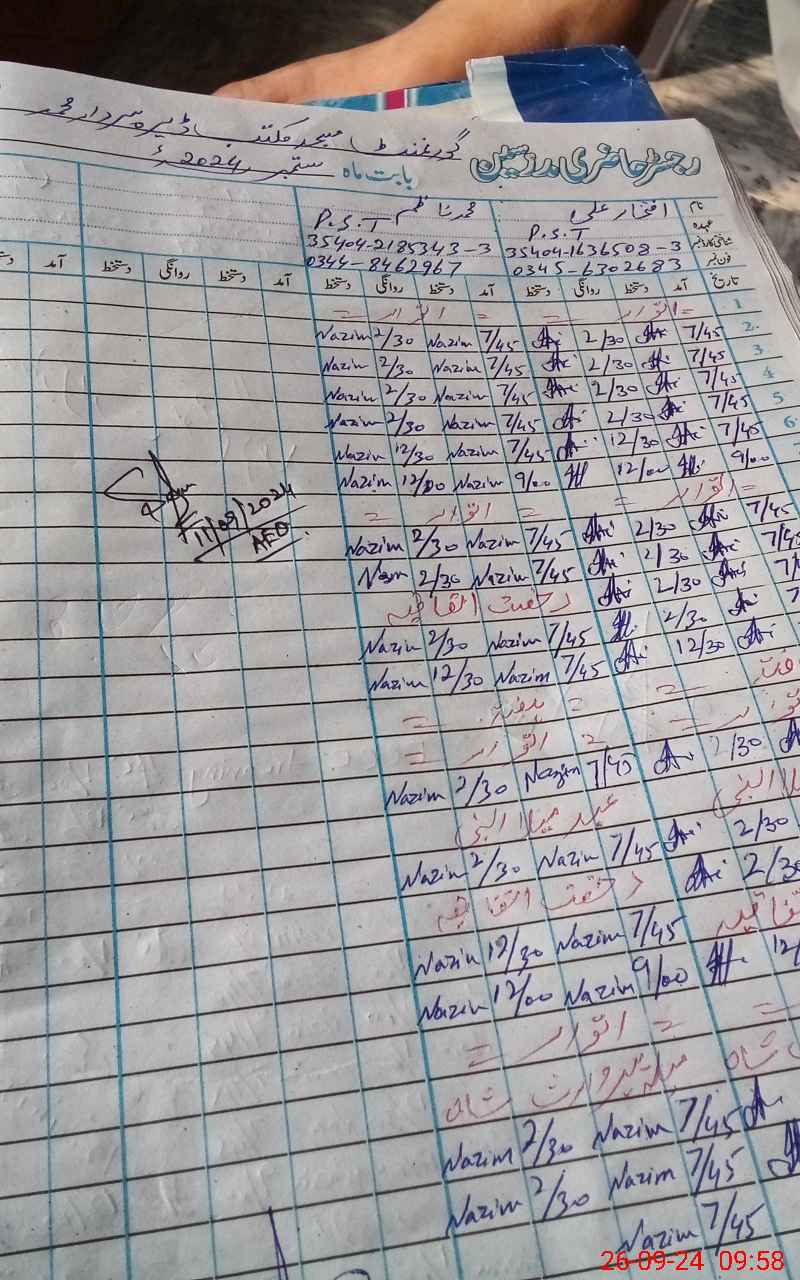 گورنمنٹ مسجد مکتب ڈیرہ سردار محمد
رجسٹر حاضری مدرسین بابت ماہ ستمبر 2024ء
نام افتخار علی محمد ناظم
عہدہ P.S.T P.S.T
شناختی کارڈ نمبر 35404-1636508-3 35404-2185343-3
فون نمبر 0345-6302683 0344-8462967
تاریخ آمد دستخط روانگی دستخط آمد دستخط روانگی دستخط آمد دستخط روانگی دستخط آمد
1 = اتوار = = اتوار =
2 7/45 2/30 7/45 Nazim 2/30 Nazim
3 7/45 2/30 7/45 Nazim 2/30 Nazim
4 7/45 2/30 7/45 Nazim 2/30 Nazim
5 7/45 2/30 7/45 Nazim 2/30 Nazim
6 7/45 12/30 7/45 Nazim 12/30 Nazim
7 9/00 12/00 9/00 Nazim 12/00 Nazim
= اتوار = = اتوار =
7/45 2/30 7/45 Nazim 2/30 Nazim
7/45 2/30 7/45 Nazim 2/30 Nazim
2/30 رخصت اتفاقیہ
2/30 7/45 Nazim 2/30 Nazim
12/30 7/45 Nazim 12/30 Nazim
= ہفتہ =
= اتوار =
2/30 7/45 Nazim 2/30 Nazim
عید میلاالنبی
2/30 7/45 Nazim 2/30 Nazim
2/30 رخصت اتفاقیہ
7/45 Nazim 12/30 Nazim
9/00 Nazim 12/00 Nazim
= اتوار =
میلہ پیر وارث شاہ
7/45 Nazim 2/30 Nazim
7/45 Nazim 2/30 Nazim
7/45 Nazim
11/09/2024
AEO
26-09-24 09:58